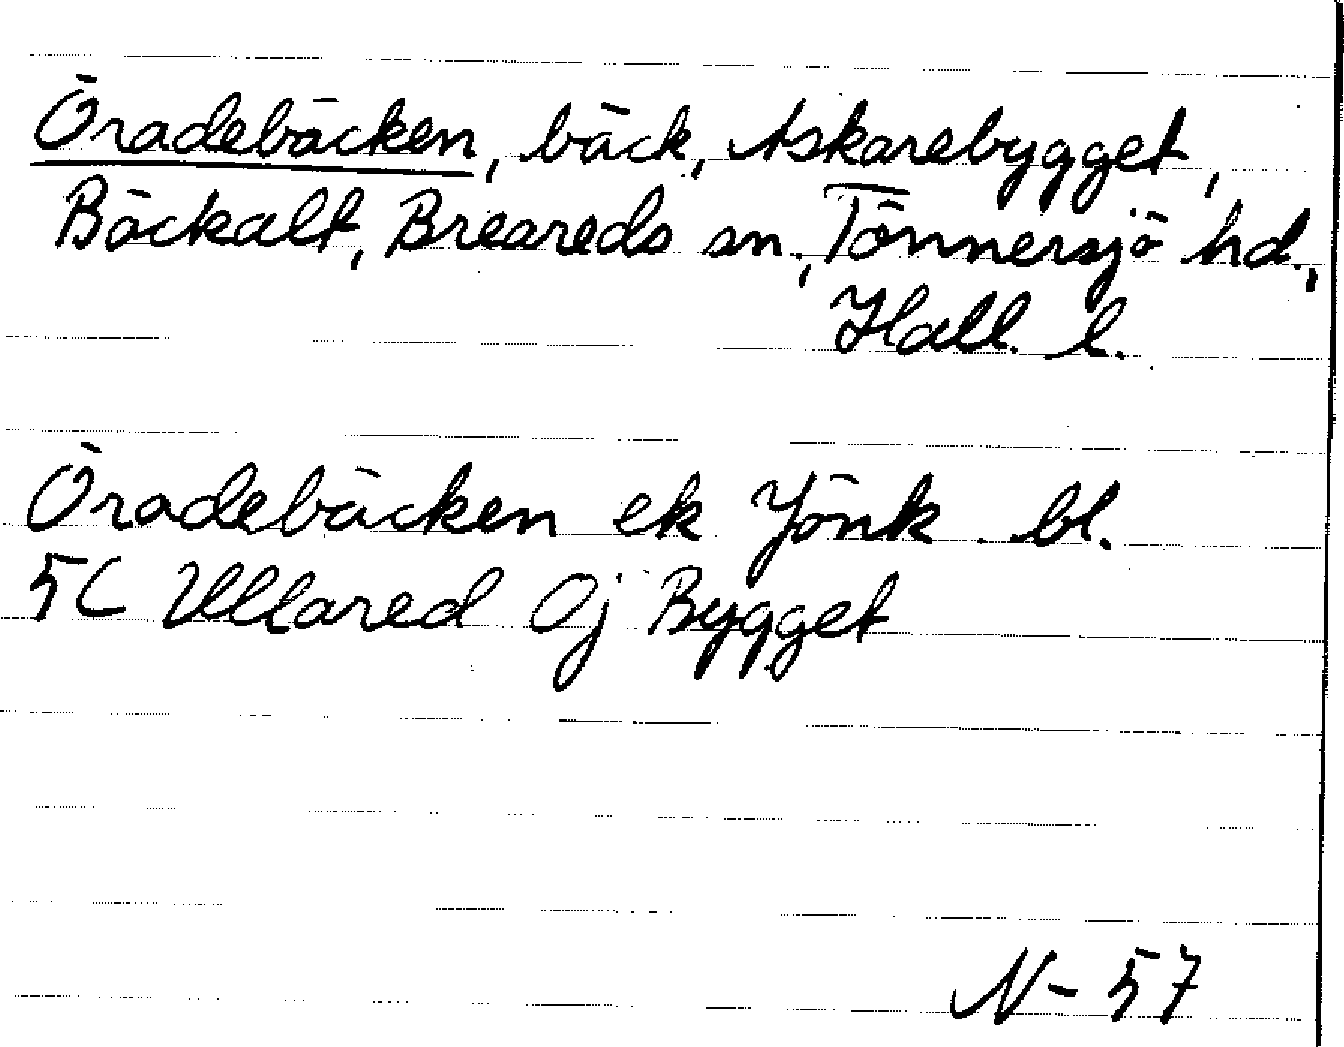 Öradebäcken, bäck, Askarebygget,
Bäckalt, Breareds sn., Tönnersjö hd.,
Hall. l.
Öradebäcken ek Jönk bl.
5C Ullared Öj Bygget
N-57